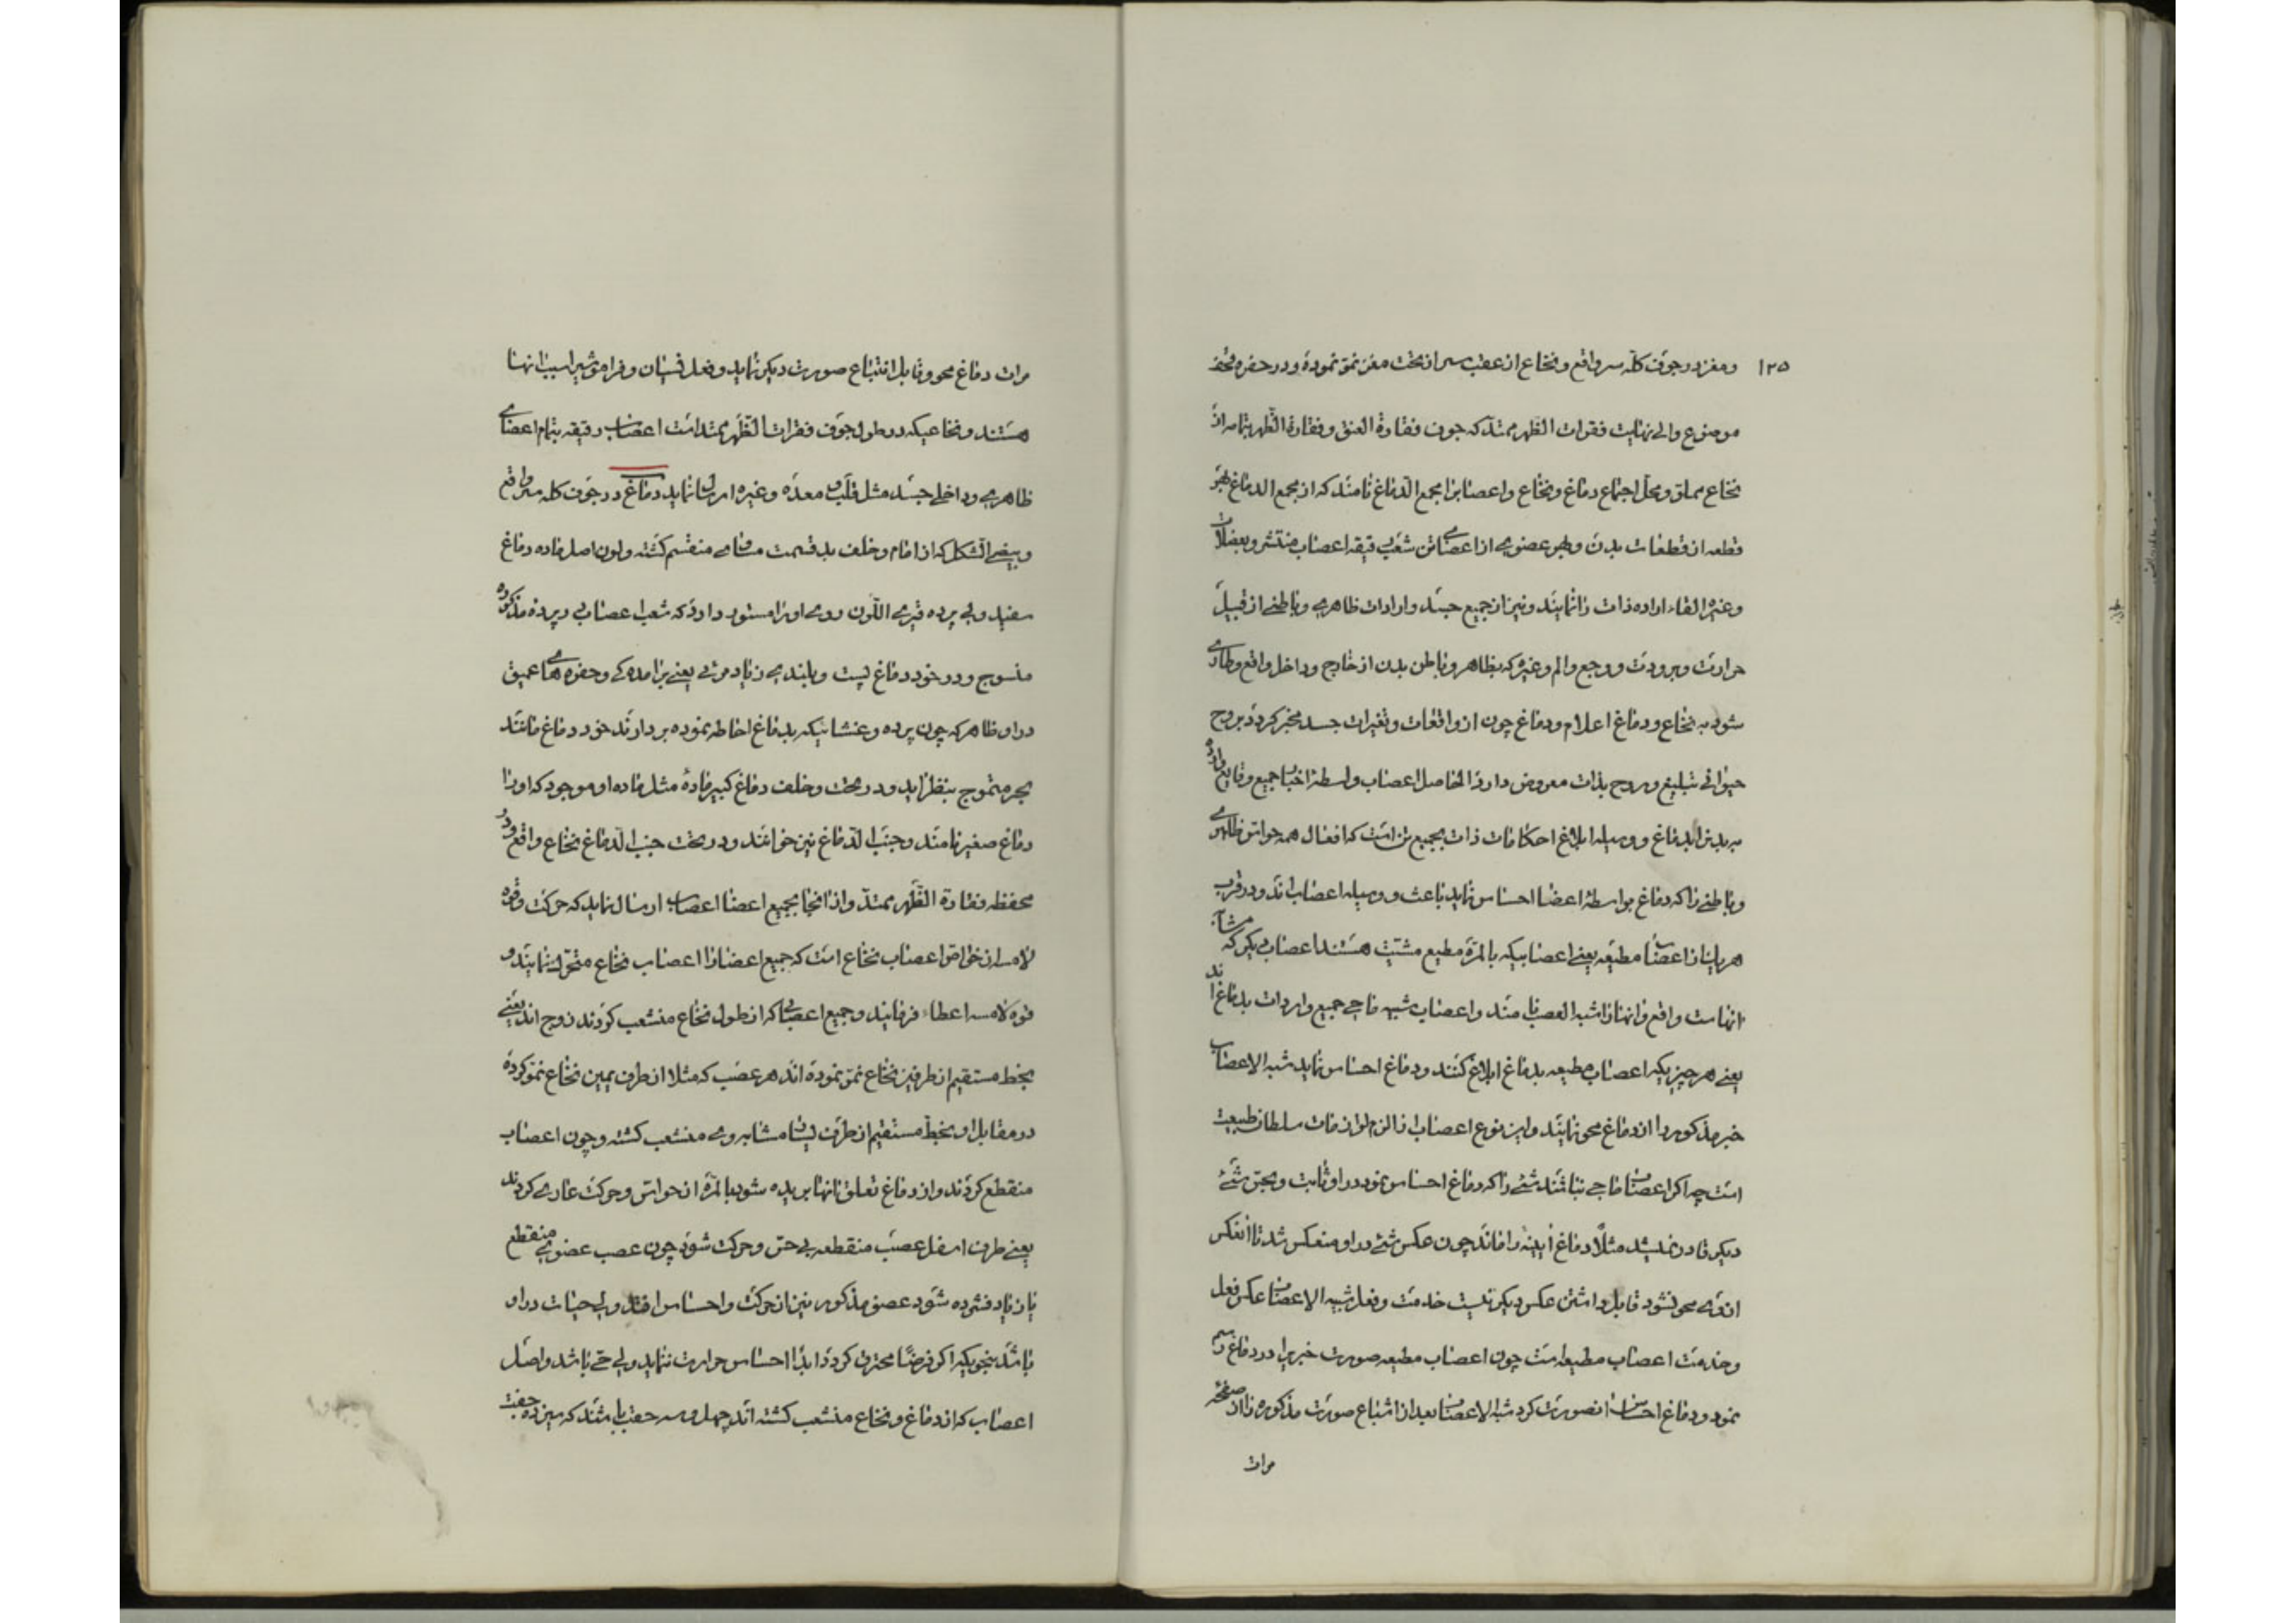 ۱۲۵
ومغز در جوف کلّه سر واقع و نخاع از عقب سر از تحت مغز نمو نموده و در حفره
موضوع والی نهایت فقرات الظهر ممتد که جوف فقارة العنق و فقارة الظهر بتمامه از
نخاع مملو و محل اجتماع دماغ و نخاع واعصابرا مجمع الدماغ نامند که از مجمع الدماغ بهر
قطعه از قطعات بدن و بهر عضوی از اعضای تن شعب دقیقه اعصاب منتشر و بعضلات
وغیره القاء اراده ذات را نمایند و نیز از جمیع جسد وارادات ظاهری و باطنی از قبیل
حرارت و برودت و وجع والم وغیره که بظاهر و باطن بدن از خارج و داخل واقع وطاری
شود به نخاع و دماغ اعلام و دماغ چون از واقعات و تغیرات جسد مخبر کردد بروح
حیوانی تبلیغ و روح بذات معروض دارد الحاصل اعصاب واسطهٔ اخبار جمیع وقایع
به بدن از دماغ و وسیله ابلاغ احکامات ذات بجمیع تن است که افعال همه حواس ظاهری
وباطنی را که دماغ بواسطهٔ اعضا احساس نماید باعث و وسیله اعصاب اند و در قرب
هر یک از اعصاب مطیعه یعنی اعصابیکه بالمرّه مطیع مشیّت هستند اعصاب دیگر که مشابه
انهاست واقع وانها را شبه العصب نامند واعصاب شبیه ماحی جمیع واردات بدماغ اند
یعنی هر چیزیکه اعصاب مطیعه بدماغ ابلاغ کنند و دماغ احساس نماید شبه الاعصاب
خبر مذکور را از دماغ محو نمایند واین نوع اعصاب از الزم لوازمات سلطان طبیعت
است چه اکر اعصاب ماحی نباشند شئی را که دماغ احساس نمود در او ثابت و بحسّ شئی
دیکر قادر نمیشد مثلاً دماغ آیینه را ماند چون عکس شئی در او منعکس شد تا آنعکس
از وی محو نشود قابل داشتن عکس دیکر نیست خدمت و فعل شبیه الاعصاب عکس فعل
وخدمت اعصاب مطیعه است چون اعصاب مطیعه صورت خبریرا در دماغ رسم
نمود و دماغ احساس انصورت کرد شبه الاعصاب بعد از اشباع صورت مذکوره را از صفحهٔ
مرات
مرات دماغ محو و قابل انتباع صورت دیکر نماید و فعل نسیان و فراموشیرا سبب انها
هستند و نخاعیکه در طول جوف فقرات الظهر ممتد است اعصاب دقیقه بتمام اعضای
ظاهری و داخلی جسد مثل قلب و معده وغیره ارسال نماید دماغ در جوف کله سر واقع
وبیضی الشکل که از امام و خلف بدو قسمت مساوی منقسم کشته ولون اصل ماده دماغ
سفید ولی پرده قیری اللون روی او را مستور دارد که شعب اعصاب در پرده مذکوره
منسوج و در خود دماغ نیست و بلندی زیاد مرئی یعنی برامده کی و حفره های عمیق
در او ظاهر که چون پرده و غشائیکه بدماغ احاطه نموده بردارند خود دماغ مانند
بحر متموج بنظر اید و در تحت و خلف دماغ کبیر مادهٔ مثل ماده او موجود که او را
دماغ صغیر نامند و جنب الدماغ نیز خوانند و در تحت جنب الدماغ نخاع واقع و در
محفظه فقارة الظهر ممتد واز انجا بجمیع اعضا اعصاب ارسال نماید که حرکت و قوه
لامسه از خواص اعصاب نخاع است که جمیع اعضا را اعصاب نخاع متحرک نمایند و
قوه لامسه اعطاء فرمایند و جمیع اعصابی که از طول نخاع منشعب کردند زوج اند یعنی
بخط مستقیم از طرفین نخاع نمو نموده اند هر عصب که مثلا از طرف یمین نخاع نمو کرده
در مقابل او بخط مستقیم از طرف یسار مشابه وی منشعب کشته و چون اعصاب
منقطع کردند واز دماغ تعلق انها بریده شود بالمرّه از حواس و حرکت عاری کردند
یعنی طرف اسفل عصب منقطعه بی حس و حرکت شود چون عصب عضوی منقطع
یا زیاد فشرده شود عضو مذکور نیز از حرکت واحساس افتد ولی حیات در او
باشد بنحویکه اکر فرضاً محترق کردد ابداً احساس حرارت ننماید ولی حی باشد واصل
اعصاب که از دماغ و نخاع منشعب کشته اند چهل و سه جفت باشند که سیزده جفت